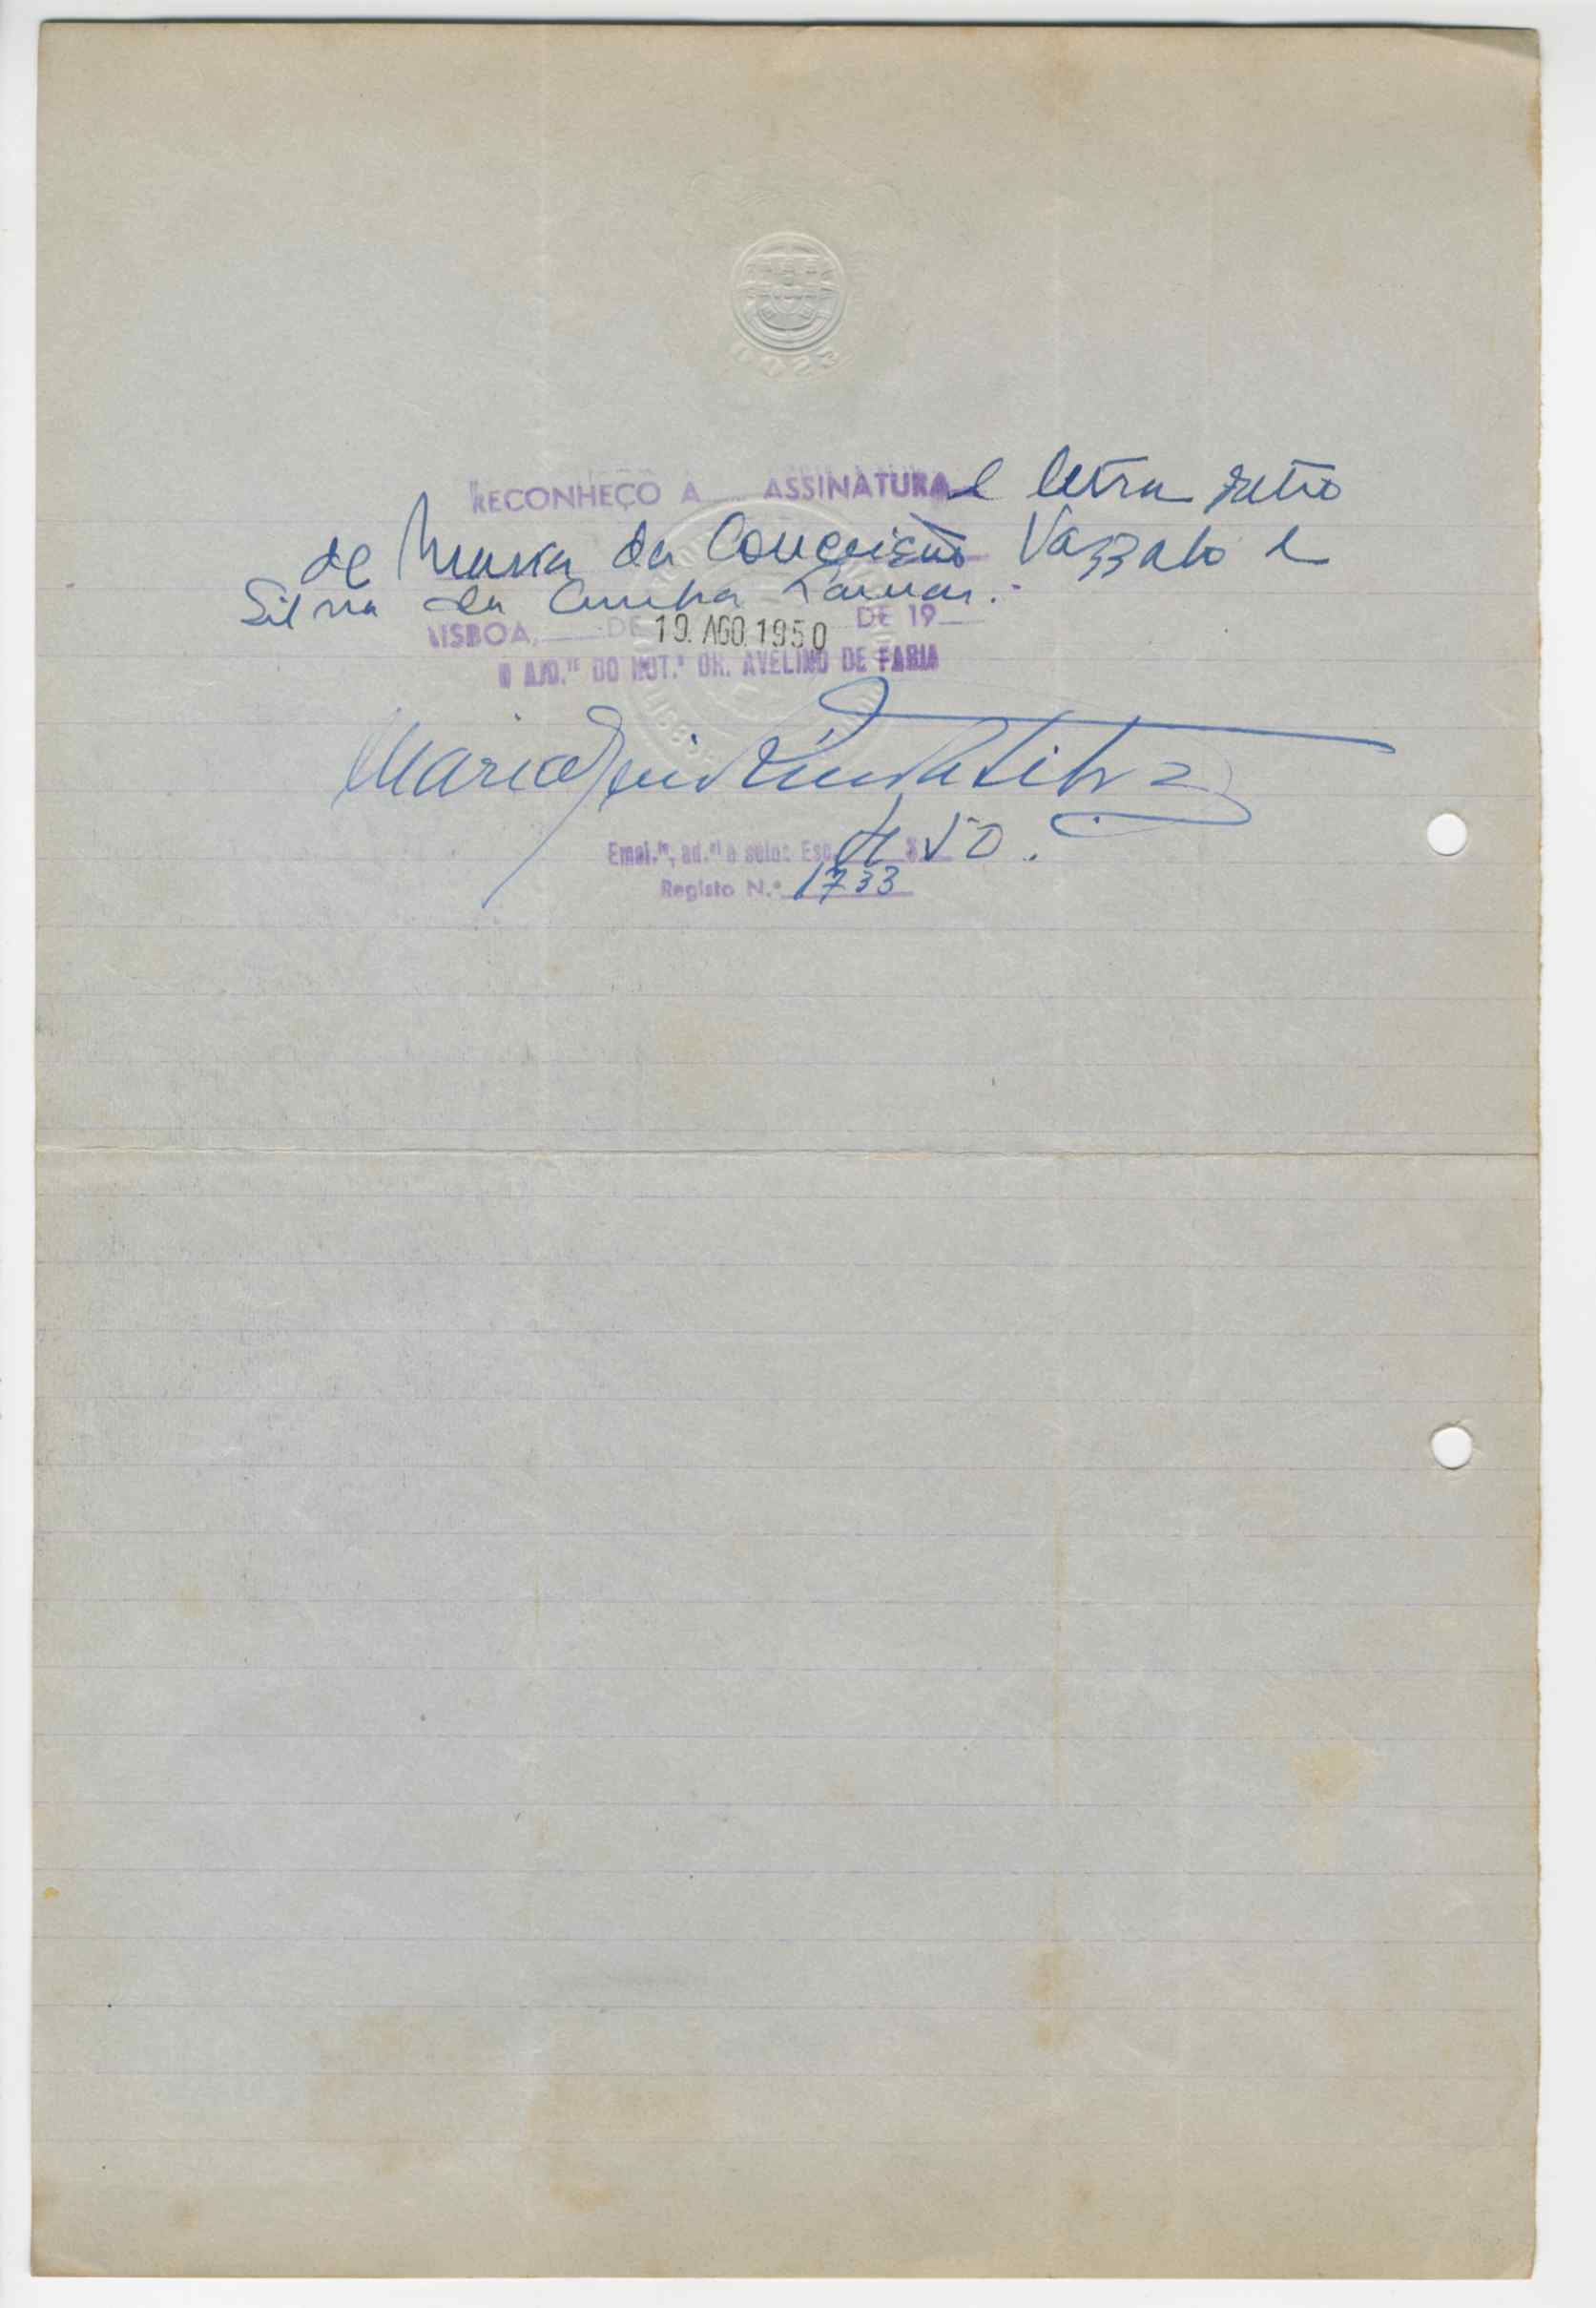 RECONHEÇO A ASSINATURA e letra retro
de Maria da Conceição Vassalo e
Silva da Cunha
LISBOA, DE 19. AGO. 1950 DE 19
O AJD.TE DO NOT.º DR. AVELINO DE FARIA
Mario Silva
Emol.tº, ad.al e selo: Esc. $50.
Registo N.º 1733